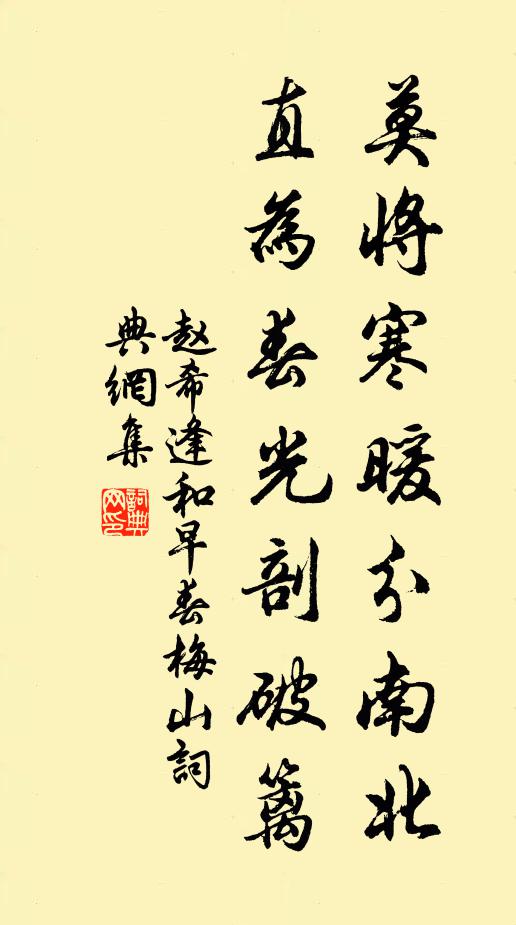 莫將寒暖分南北
直為春光剖破籬
赵希逢和早春梅山詞
典網集
詞典网印